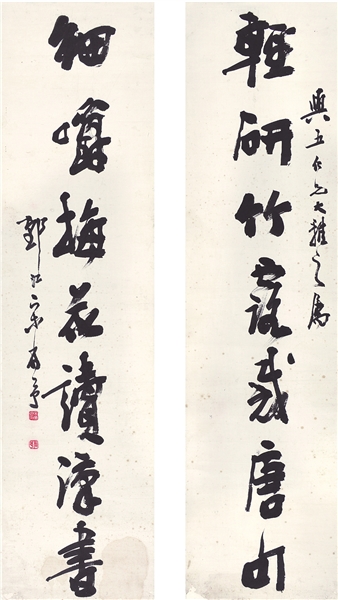 興五仁兄大雅之屬
輕研竹露裁唐句
細嚼梅花讀漢書